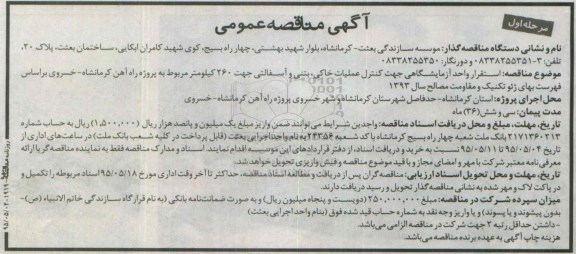 مرحله اول
آگهی مناقصه عمومی
نام و نشانی دستگاه مناقصه‌گذار: موسسه سازندگی بعثت- کرمانشاه، بلوار شهید بهشتی، چهار راه بسیج، کوی شهید کامران ابکایی، ساختمان بعثت، پلاک ۲۰،
تلفن: ۳-۰۸۳۳۸۲۵۵۳۵۱ و دورنگار: ۰۸۳۳۸۲۵۵۳۵۰
موضوع مناقصه: استقرار واحد آزمایشگاهی جهت کنترل عملیات خاکی، بتنی و آسفالتی جهت ۲۶۰ کیلومتر مربوط به پروژه راه آهن کرمانشاه- خسروی براساس
فهرست بهای ژئو تکنیک و مقاومت مصالح سال ۱۳۹۳
محل اجرای پروژه: استان کرمانشاه- حدفاصل شهرستان کرمانشاه و شهر خسروی پروژه راه آهن کرمانشاه- خسروی
مدت پیمان: سی و شش (۳۶) ماه
تاریخ، مهلت، مبلغ و محل دریافت اسناد مناقصه: واجدین شرایط می‌توانند ضمن واریز مبلغ یک میلیون و پانصد هزار ریال (۱,۵۰۰,۰۰۰) ریال به حساب شماره
۲۱۷۱۳۶۰۲۱۳ بانک ملت شعبه چهار راه بسیج کرمانشاه با کد شعبه ۲۴۳۵۴ به نام واحد اجرایی بعثت (قابل پرداخت در کلیه شعب بانک ملت) در ساعت‌های اداری از
تاریخ ۹۵/۰۵/۰۴ تا ۹۵/۰۵/۱۱ نسبت به خرید و دریافت اسناد، از دفتر قراردادهای این موسسه اقدام نمایند. اسناد و مدارک مناقصه فقط به نماینده مناقصه‌گر با ارائه
معرفی‌نامه معتبر شرکت با مهر و امضای مجاز و با قید موضوع مناقصه و فیش واریزی تحویل خواهد شد.
تاریخ، مهلت و محل تحویل اسناد ارزیابی: مناقصه‌گران پس از دریافت و مطالعه اسناد مناقصه، حداکثر تا آخر وقت اداری مورخ ۹۵/۰۵/۱۸ اسناد مربوطه را تکمیل و
در پاکت لاک و مهر شده به نشانی مناقصه‌گذار تحویل و رسید دریافت دارند.
میزان سپرده شرکت در مناقصه: مبلغ ۲۵۰,۰۰۰,۰۰۰ (دویست و پنجاه میلیون ریال) و به صورت ضمانت‌نامه بانکی (به نام قرارگاه سازندگی خاتم الانبیاء (ص)-
بدون پیشوند و یا پسوند) و یا واریز وجه نقد به شماره حساب قید شده فوق (بنام واحد اجرایی بعثت)
- داشتن حداقل رتبه ۳ جهت شرکت در مناقصه الزامی می‌باشد.
هزینه چاپ آگهی به عهده برنده مناقصه می‌باشد.